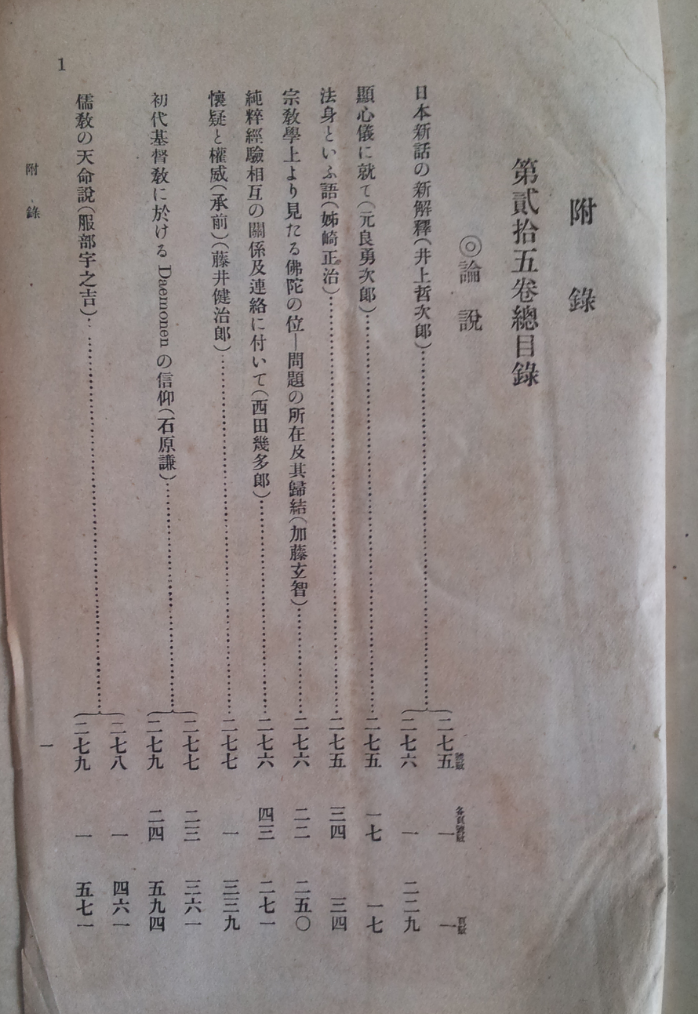 附錄
第貳拾五卷總目錄
◎論說
號數 各頁號數 頁數
日本新話の新解釋(井上哲次郎)……二七五 一 一
二七六 一 二二九
顯心儀に就て(元良勇次郎)……二七五 一七 一七
法身といふ語(姊崎正治)……二七五 三四 三四
宗敎學上より見たる佛陀の位—問題の所在及其歸結(加藤玄智)……二七六 二二 二五〇
純粹經驗相互の關係及連絡に付いて(西田幾多郎)……二七六 四三 二七一
懷疑と權威(承前)(藤井健治郎)……二七七 一 三三九
初代基督敎に於ける Daemonen の信仰(石原謙)……二七七 二三 三六一
二七九 二四 五九四
儒敎の天命說(服部宇之吉)……二七八 一 四六一
二七九 一 五七一
附錄
一
1